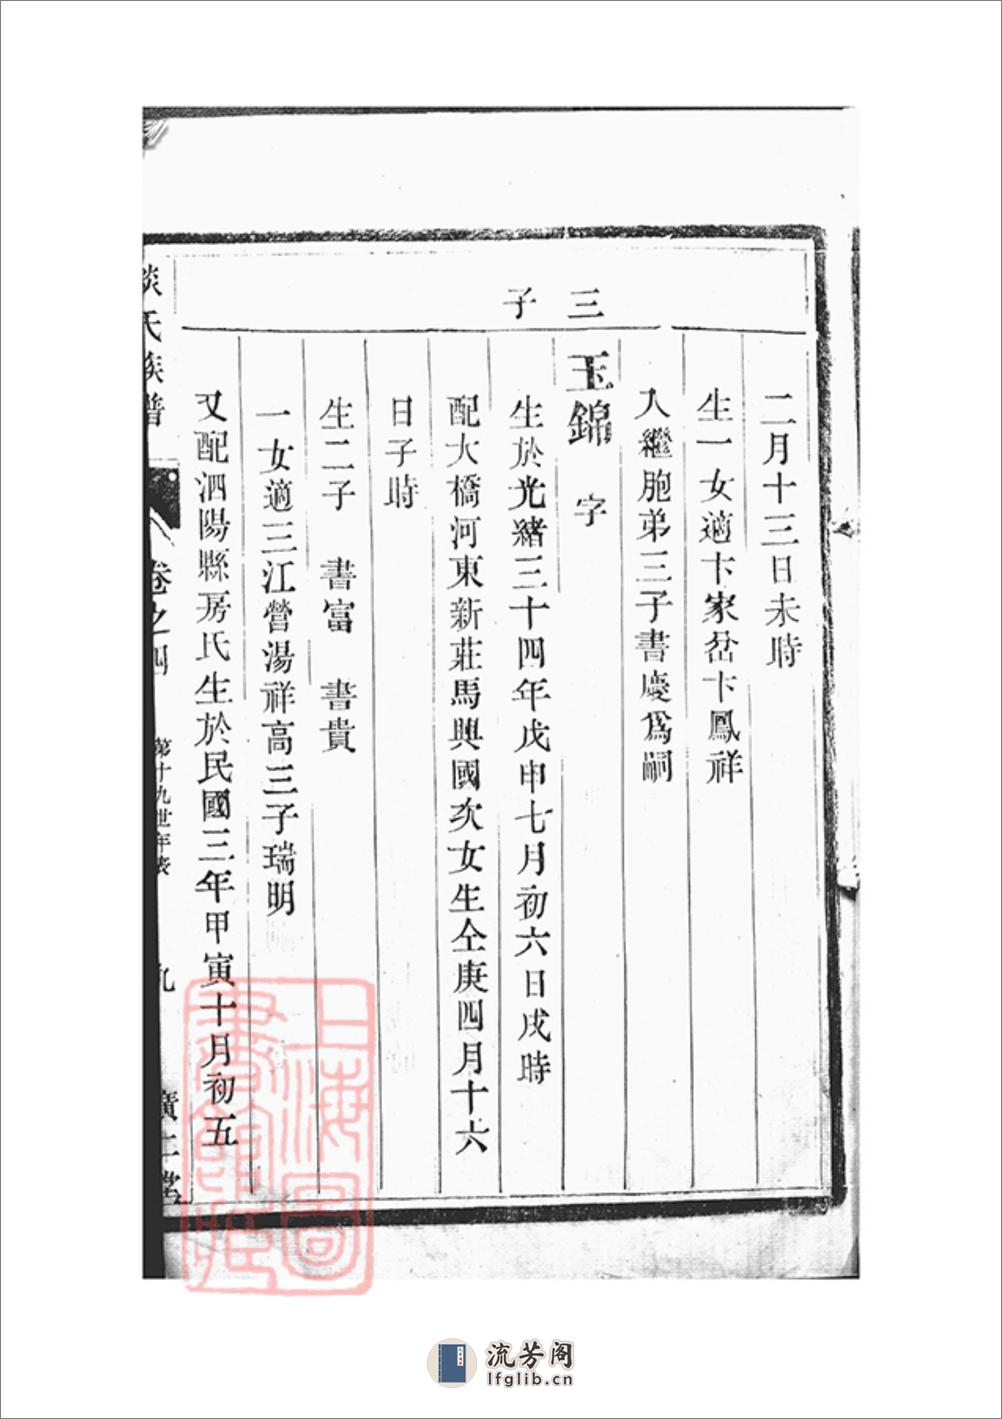 三子
二月十三日未時
生一女適卞家岔卞鳳祥
入繼胞弟三子書慶爲嗣
玉錦 字
生於光緒三十四年戊申七月初六日戌時
配大橋河東新莊馬興國次女生仝庚四月十六
日子時
生二子 書富 書貴
一女適三江營湯祥高三子瑞明
又配泗陽縣房氏生於民國三年甲寅十月初五
氏族譜
卷之四
第十九世年表
九
廣仁堂
上海圖
書館藏
流芳阁
lfglib.cn